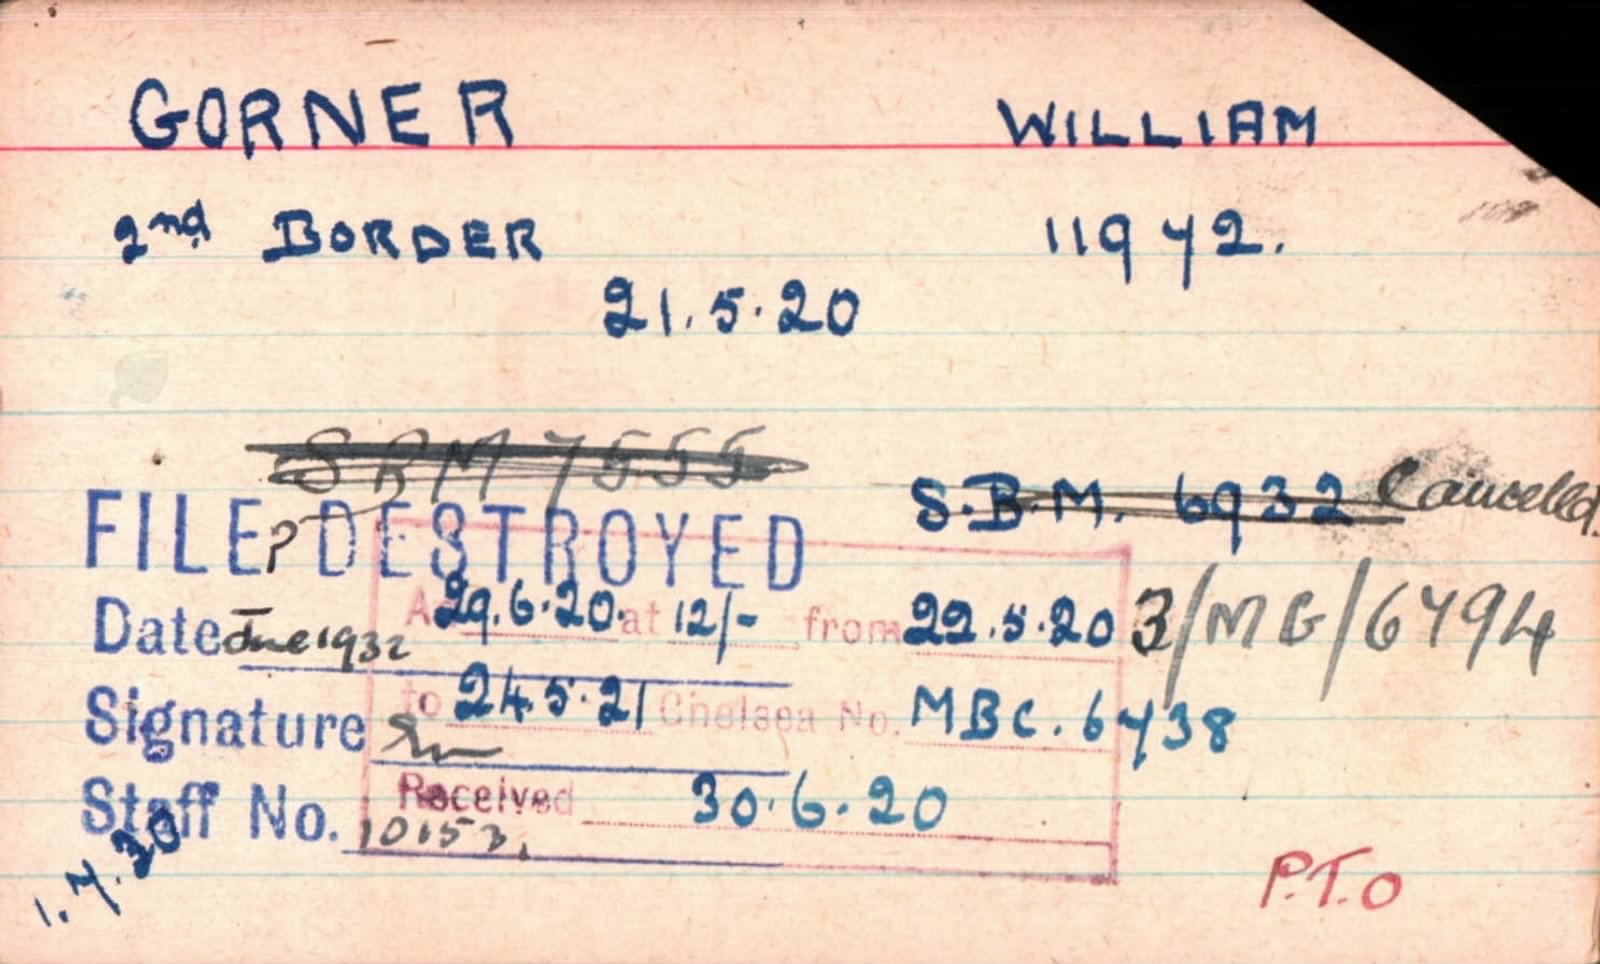 GORNER WILLIAM
2nd BORDER 11942.
21.5.20
SBM 7555
S.B.M. 6932 Cancelled.
FILE ? DESTROYED
29.6.20. at 12/- from 22.5.20 3/MG/6794
Date June 1932
to 24.5.21 Chelsea No. MBC. 6738
Signature
Received 30.6.20
Staff No. 10153.
1.7.20
P.T.O